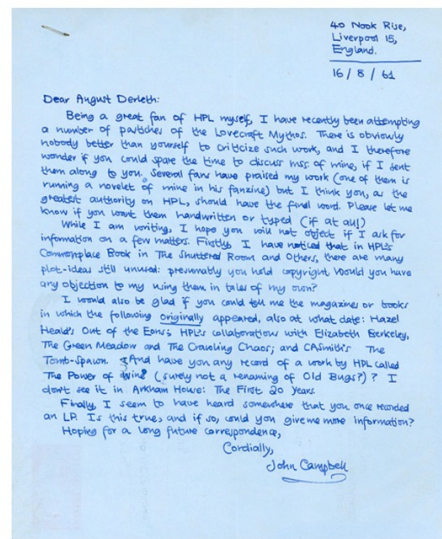 40 Nook Rise,
Liverpool 15,
England.
16/8/61
Dear August Derleth:
Being a great fan of HPL myself, I have recently been attempting
a number of pastiches of the Lovecraft Mythos. There is obviously
nobody better than yourself to criticize such work, and I therefore
wonder if you could spare the time to discuss mss. of mine, if I sent
them along to you. Several fans have praised my work (one of them is
running a novelet of mine in his fanzine) but I think you, as the
greatest authority on HPL, should have the final word. Please let me
know if you want them handwritten or typed (if at all)
While I am writing, I hope you will not object if I ask for
information on a few matters. Firstly, I have noticed that in HPL's
Commonplace Book in The Shuttered Room and Others, there are many
plot-ideas still unused: presumably you hold copyright. Would you have
any objection to my using them in tales of my own?
I would also be glad if you could tell me the magazines or books
in which the following originally appeared, also at what date: Hazel
Heald's Out of the Eons; HPL's collaborations with Elizabeth Berkeley,
The Green Meadow and The Crawling Chaos; and CASmith's The
Tomb-Spawn. And have you any record of a work by HPL called
The Power of Wine (surely not a renaming of Old Bugs?)? I
don't see it in Arkham House: The First 20 Years.
Finally, I seem to have heard somewhere that you once recorded
an LP. Is this true, and if so, could you give me more information?
Hoping for a long future correspondence,
Cordially,
John Campbell